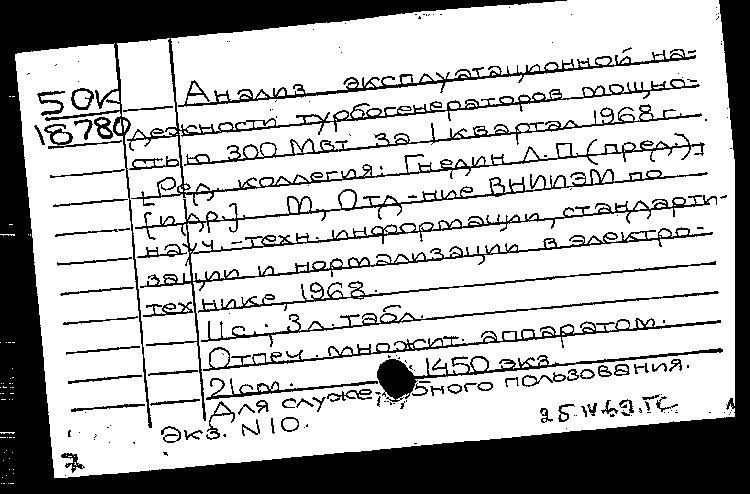 50К
18780
Анализ эксплуатационной на-
дежности турбогенераторов мощно-
стью 300 Мвт за I квартал 1968 г.
[Ред. коллегия: Гнедин Л.П. (пред.)
[и др.]. М., Отд-ние ВНИИЭМ по
науч.-техн. информации, стандарти-
зации и нормализации в электро-
технике, 1968.
11 с.; 3 л. табл.
Отпеч. множит. аппаратом.
21 cm. 1450 экз.
Для служебного пользования.
Экз. N 10.